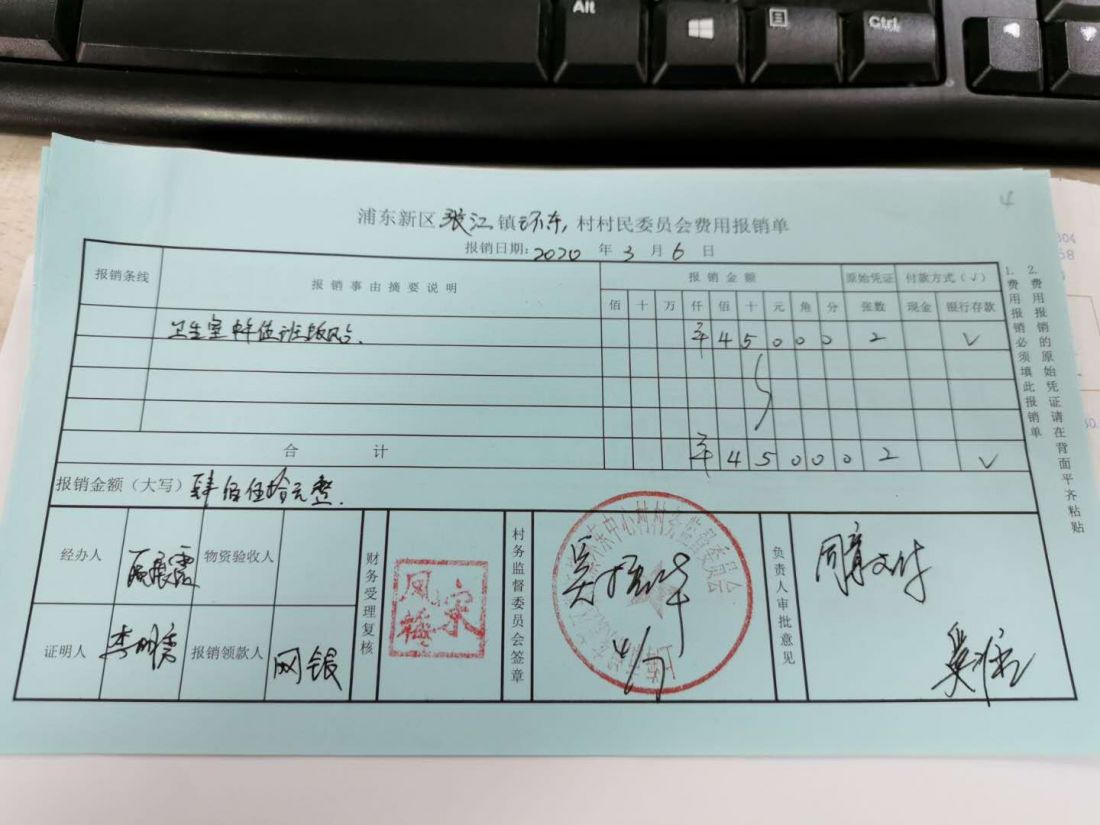 Alt
Ctrl
4
浦东新区张江镇环东村村民委员会费用报销单
报销日期:2020年3月6日
报销条线 报销事由摘要说明 报销金额 原始凭证 付款方式(√)
佰 十 万 仟 佰 十 元 角 分 张数 现金 银行存款
卫生室 值班 ¥45000 2 √
合计 ¥45000 2 √
报销金额(大写)肆佰伍拾元整.
经办人 物资验收人
证明人 报销领款人 网银
财务受理复核
村务监督委员会签章
4/7
负责人审批意见
同意支付
1.费用报销必须填此报销单
2.费用报销的原始凭证请在背面平齐粘贴